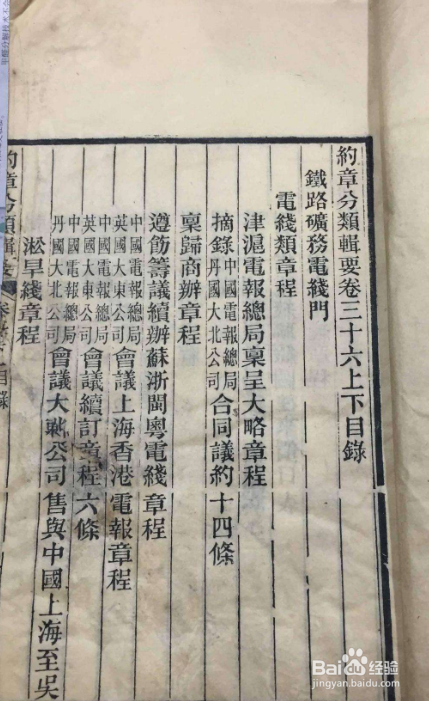 約章分類輯要卷三十六上下目錄
鐵路礦務電綫門
電綫類章程
津滬電報總局稟呈大略章程
摘錄中國電報總局丹國大北公司合同議約十四條
稟歸商辦章程
遵飭籌議續辦蘇浙閩粵電綫章程
中國電報總局英國大東公司會議上海香港電報章程
中國電報總局英國大東公司會議續訂章程六條
中國電報總局丹國大北公司會議大北公司售與中國上海至吳
淞旱綫章程
約章分類輯要
目錄
Baidu经验
jingyan.baidu.com